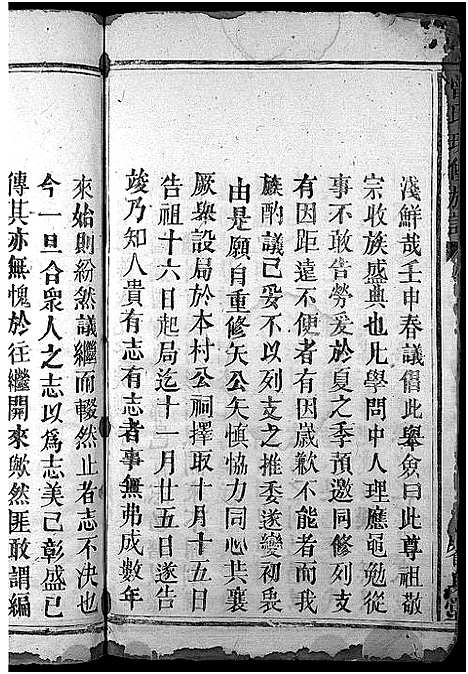 淺鮮哉壬申春議倡此舉僉曰此尊祖敬
宗收族盛典也凡學問中人理應黽勉從
事不敢告勞爰於夏之季預邀同修列支
有因距遠不便者有因歲歉不能者而我
族酌議己妥不以列支之推委遂變初衷
由是願自重修矢公矢慎協力同心共襄
厥舉設局於本村公祠擇取十月十五日
告祖十六日起局迄十一月廿五日遂告
竣乃知人貴有志有志者事無弗成數年
來始則紛然議繼而輟然止者志不決也
今一旦合衆人之志以爲志美己彰盛已
傳其亦無愧於往繼開來歟然匪敢謂編